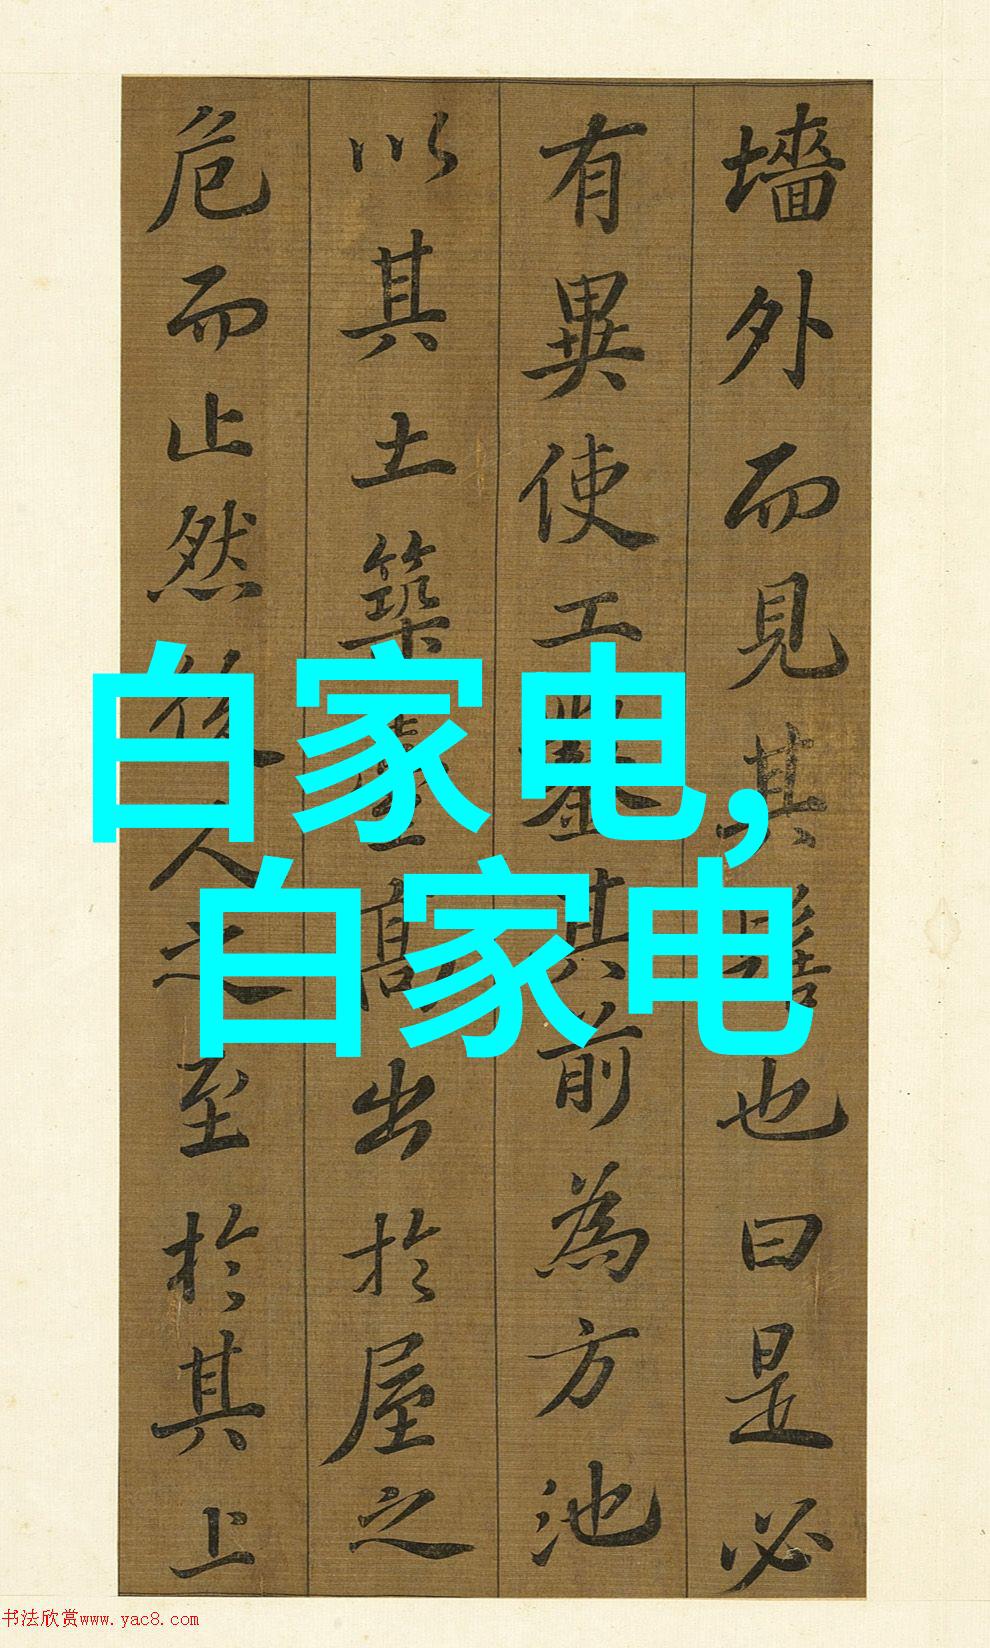 墻外而見其髻也曰是必
有異使工鑿其前為方池
以其土築臺高出於屋之
危而止然後人之至於其上
白家电,
白家电
书法欣赏www.yac8.com